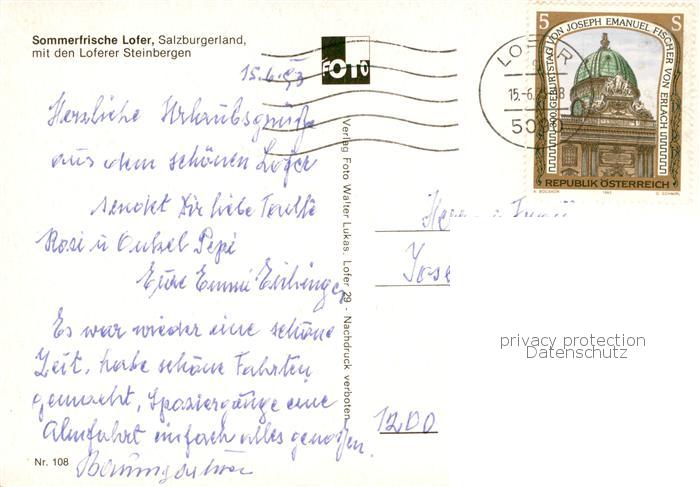 Sommerfrische Lofer, Salzburgerland,
mit den Loferer Steinbergen
FOTO
15.6.93
Herzliche Urlaubsgrüße
aus dem schönen Lofer
sendet Dir liebe Tante
Rosi u Onkel Pepi
Eure Emmi
Es war wieder eine schöne
Zeit, habe schöne Fahrten
gemacht, Spaziergänge eine
Almfahrt einfach alles genossen.
Nr. 108
Verlag Foto Walter Lukas, Lofer 29 - Nachdruck verboten
LOFER
15.-6.
5
S
GEBURTSTAG VON JOSEPH EMANUEL FISCHER VON ERLACH
REPUBLIK ÖSTERREICH
u
Jose
1200
privacy protection
Datenschutz